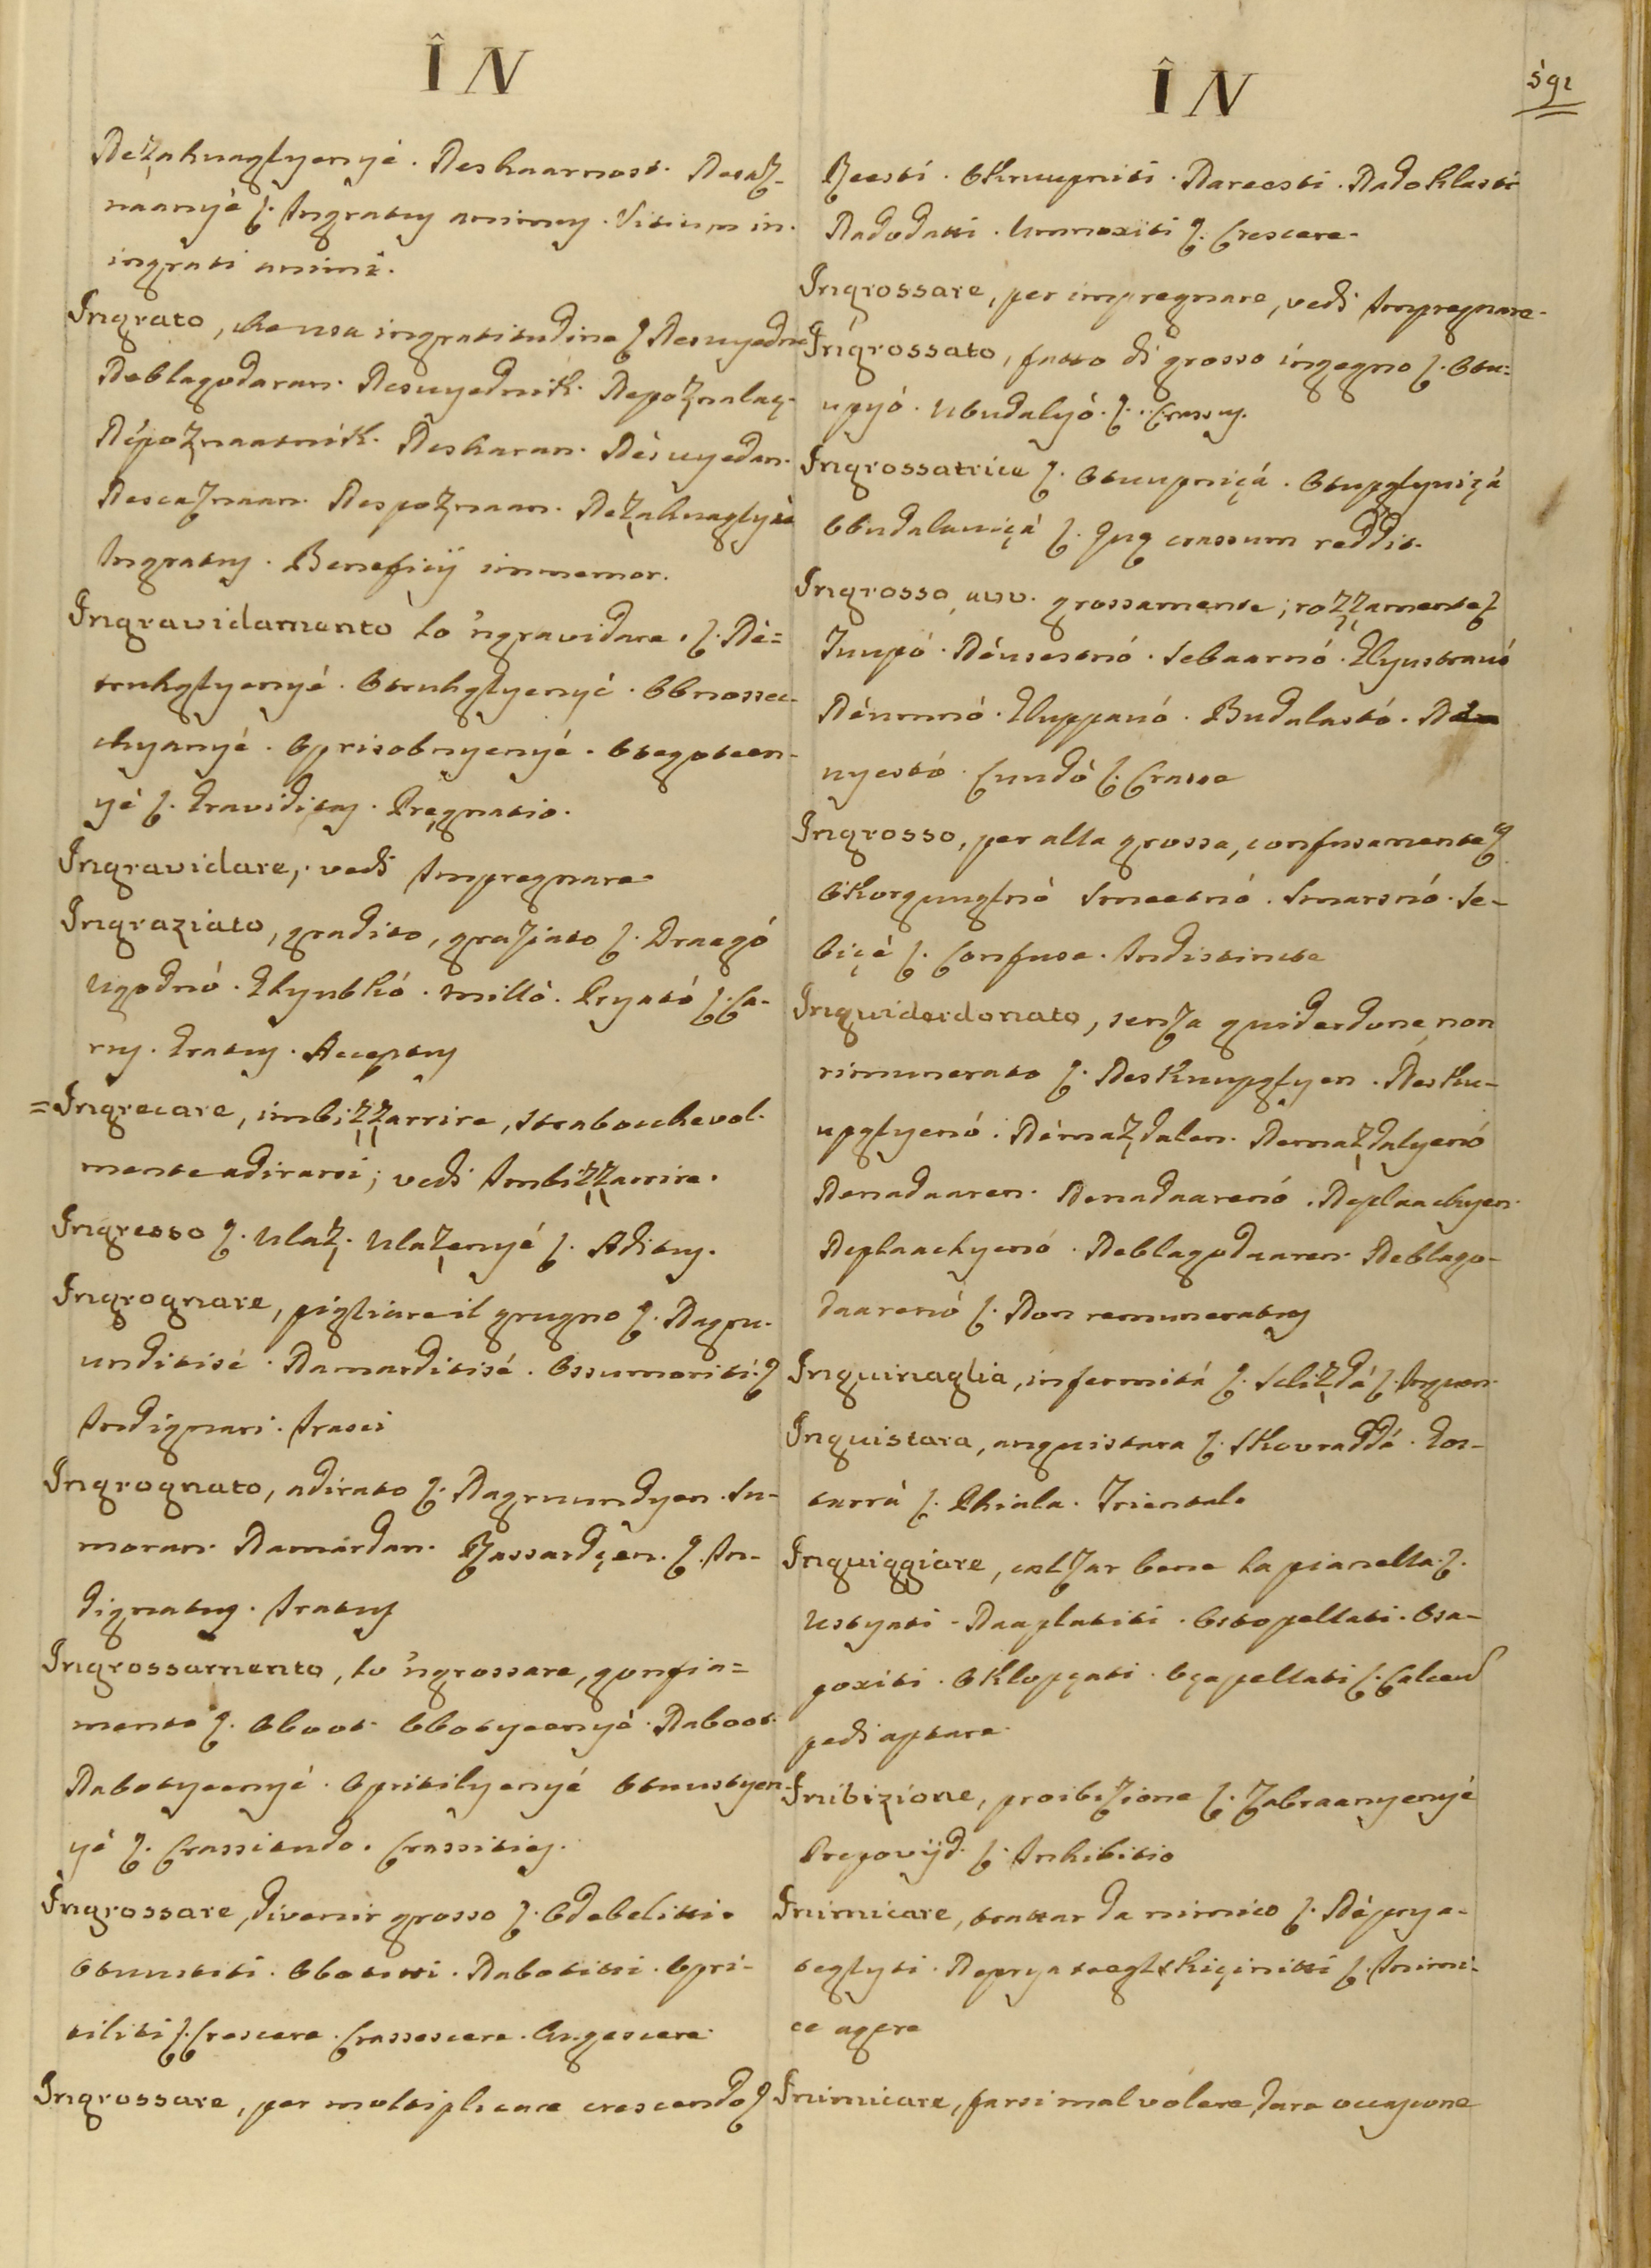 ÎN
Nezahuaglyenyé. Neshaarnost. Nesaz-
naanyé ſ. Ingratus animus. Vitium in.
ingrati animi.
Ingrato, che usa ingratitudine ſ Nesuyedno
Neblagodaran. Nesuyednik. Nepoznalaz.
Népoznaatnik. Nesharan. Nésuyedan.
Nescaznaan. Nespoznaan. Nezahuaglyè
Ingratus. Beneficij immemor.
Ingravidamento lo 'ngravidare. ſ. Né=
truhglyenyé. Otruhglyenyé. Obnossec-
chyanyé. Oprisobnyenyé. Otegoteen-
yé ſ. Graviditas. Pręgnatio.
Ingravidare, vedi Impregnare
Ingraziato, gradito, graziato ſ. Draegó
Ugodnó. Glyubkó. Milló. Pryató ſ. Ca-
rus. Gratus. Acceptus
=Ingrecare, imbizzarrire, strabocchevol.
mente adirarsi; vedi Imbizzarrire.
Ingresso ſ. Ulaz. Ulazenyé ſ. Aditus.
Ingrognare, pigliare il grugno ſ. Nagru-
unditisé. Namarditisé. Ossumoriti. ſ
Indignari. Irasci
Ingrognato, adirato ſ. Nagruundyen. Su-
moran. Namardan. Rassardçen. ſ. In-
dignatus. Iratus
Ingrossamento, lo 'ngrossare, gonfia=
mento ſ. Oboot. Obotyeenyé. Naboot.
Nabotyeenyé. Opritilyenyé Otuustyen-
yé ſ. Crassitudo. Crassities.
Ingrossare, divenir grosso ſ. Odebelitti.
Otuustiti. Obotitti. Nabotitti. Opri-
tiliti ſ. Crescere. Crassescere. Augescere.
Ingrossare, per moltiplicare crescendo ſ
ÎN
591
Reesti. Okruupniti. Nareesti. Nadoklasti
Nadodatti. Umnoxiti ſ. Crescere.
Ingrossare, per impregnare, vedi Impregnare.
Ingrossato, fatto di grosso ingegno ſ. Otu-
upyó. Ubudalyó. ſ. Crassus.
Ingrossatrice ſ. Otuupniçá. Otupglyniçá
Obudalauiçá ſ. Quę crassum reddit.
Ingrosso, avv. grossamente; rozzamente ſ
Tuupó. Néusestnó. Sebaarnó. Glyustauó
Néumnó. Gluppauó. Budalastó.
uyestó. Luudó ſ. Crasse
Ingrosso, per alla grossa, confusamente ſ
Okorguuglnó Smeetnó. Smarsnó. Se-
biçé ſ. Confuse. Indistincte
Inguiderdonato, senza guiderdone, non
rimunerato ſ. Neskuupglyen. Nesku-
upglyenó. Némazdalen. Nemazdalyenó
Nenadaaren. Nenadaarenó. Neplaachyen.
Neplaachyenó. Neblagodaaren. Neblago-
daarenó ſ. Non remuneratus
Inguinaglia, infermitá ſ. Slizdá ſ. Inguen.
Inguistara, anguistara ſ. Skouraddá. Gos-
tarrá ſ. Phiala. Trientale
Inguiggiare, calzar bene la pianella. ſ.
Ustyati. Naaplatiti. Ostopellati. Osa-
poxiti. Oklopçati. Oçapellati ſ. Calceũ
pedi aptare.
Inibizione, proibizione ſ. Zabraanyenyé
Prepovijd. ſ. Inhibitio
Inimicare, trattar da nimico ſ. Néprya-
teglyti. Nepryateeglskiçinitti ſ. Inimi-
ce agere
Inimicare, farsi mal volere, dare occasione